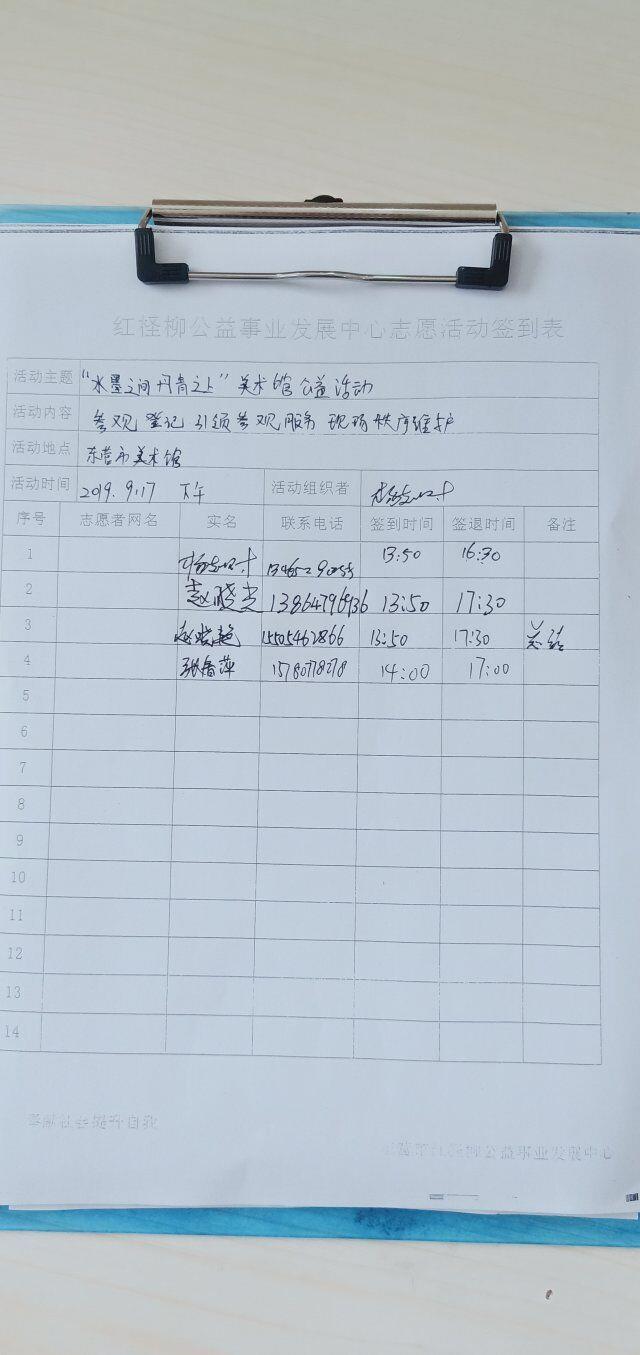 红柽柳公益事业发展中心志愿活动签到表
活动主题 "水墨之间 丹青之上" 美术馆公益活动
活动内容 参观登记 引领参观服务 现场秩序维护
活动地点 东营市美术馆
活动时间 2019.9.17 下午 活动组织者
序号 志愿者网名 实名 联系电话 签到时间 签退时间 备注
1 13:50 16:30
2 赵晓光 13864796936 13:50 17:30
3 赵晓艳 15505462866 13:50 17:30 总结
4 张香萍 15780778278 14:00 17:00
5
6
7
8
9
10
11
12
13
14
奉献社会提升自我
红柽柳公益事业发展中心